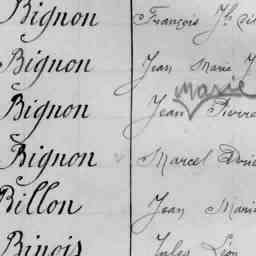 Bignon François Jh
Bignon Jean Marie
Marie
Bignon Jean Pierre
Bignon Marcel
Billon Jean Marie
Binois Jules Léon